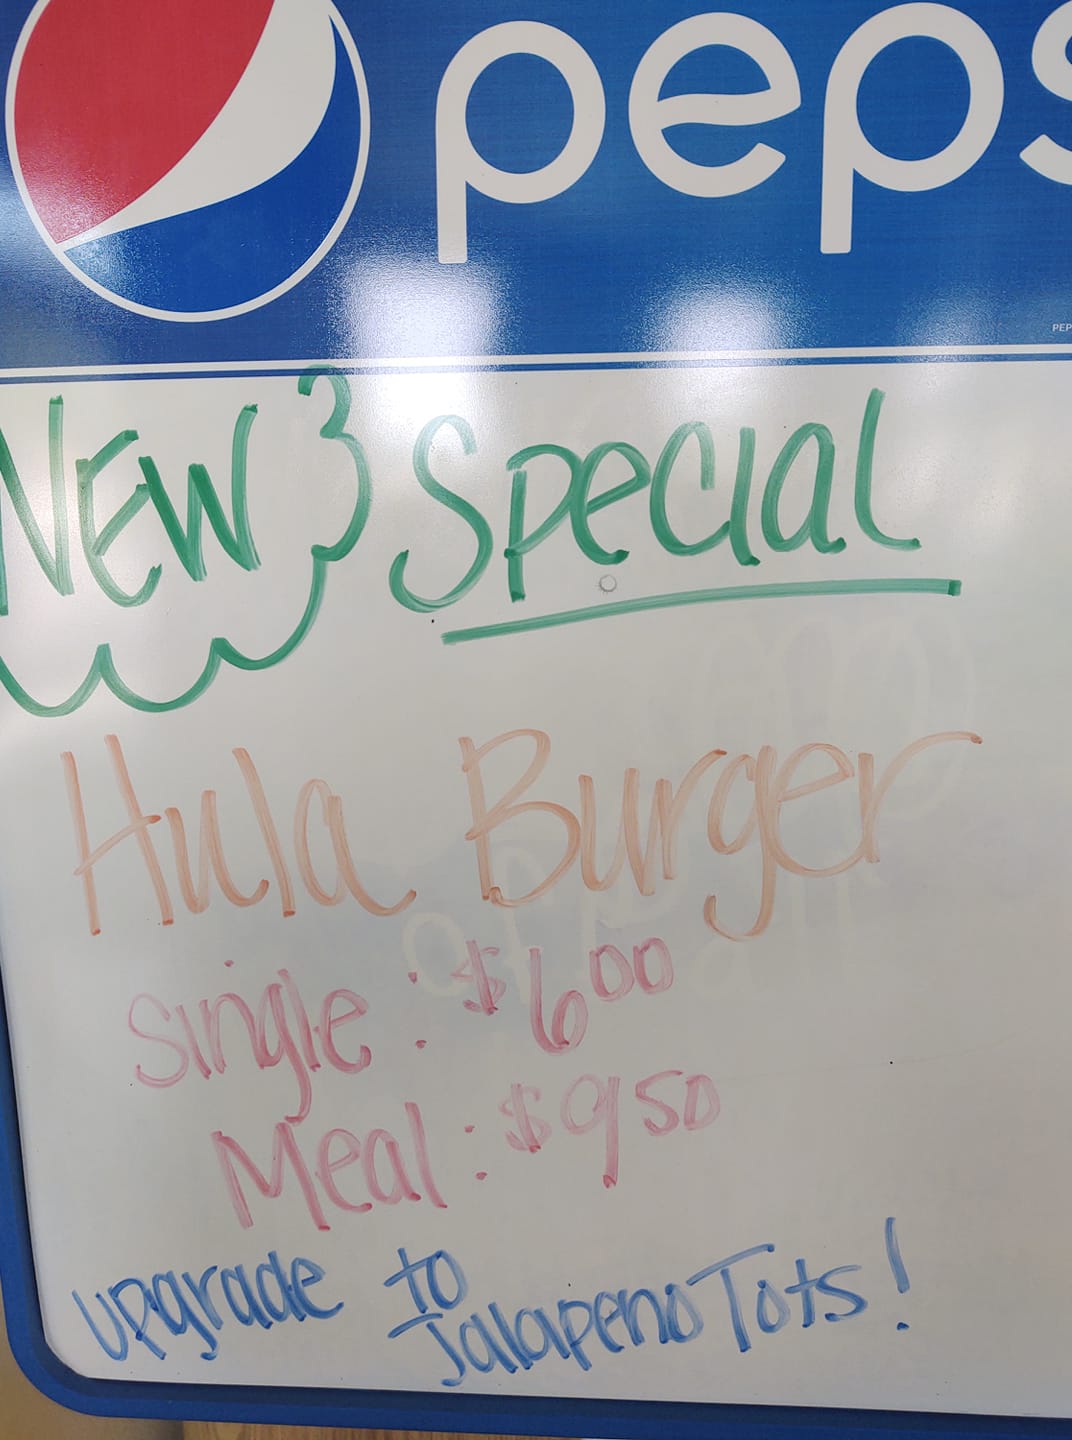 peps
PEP
NEW Special
Hula Burger
Single: $6.00
Meal: $9.50
upgrade to
Jalapeno Tots!